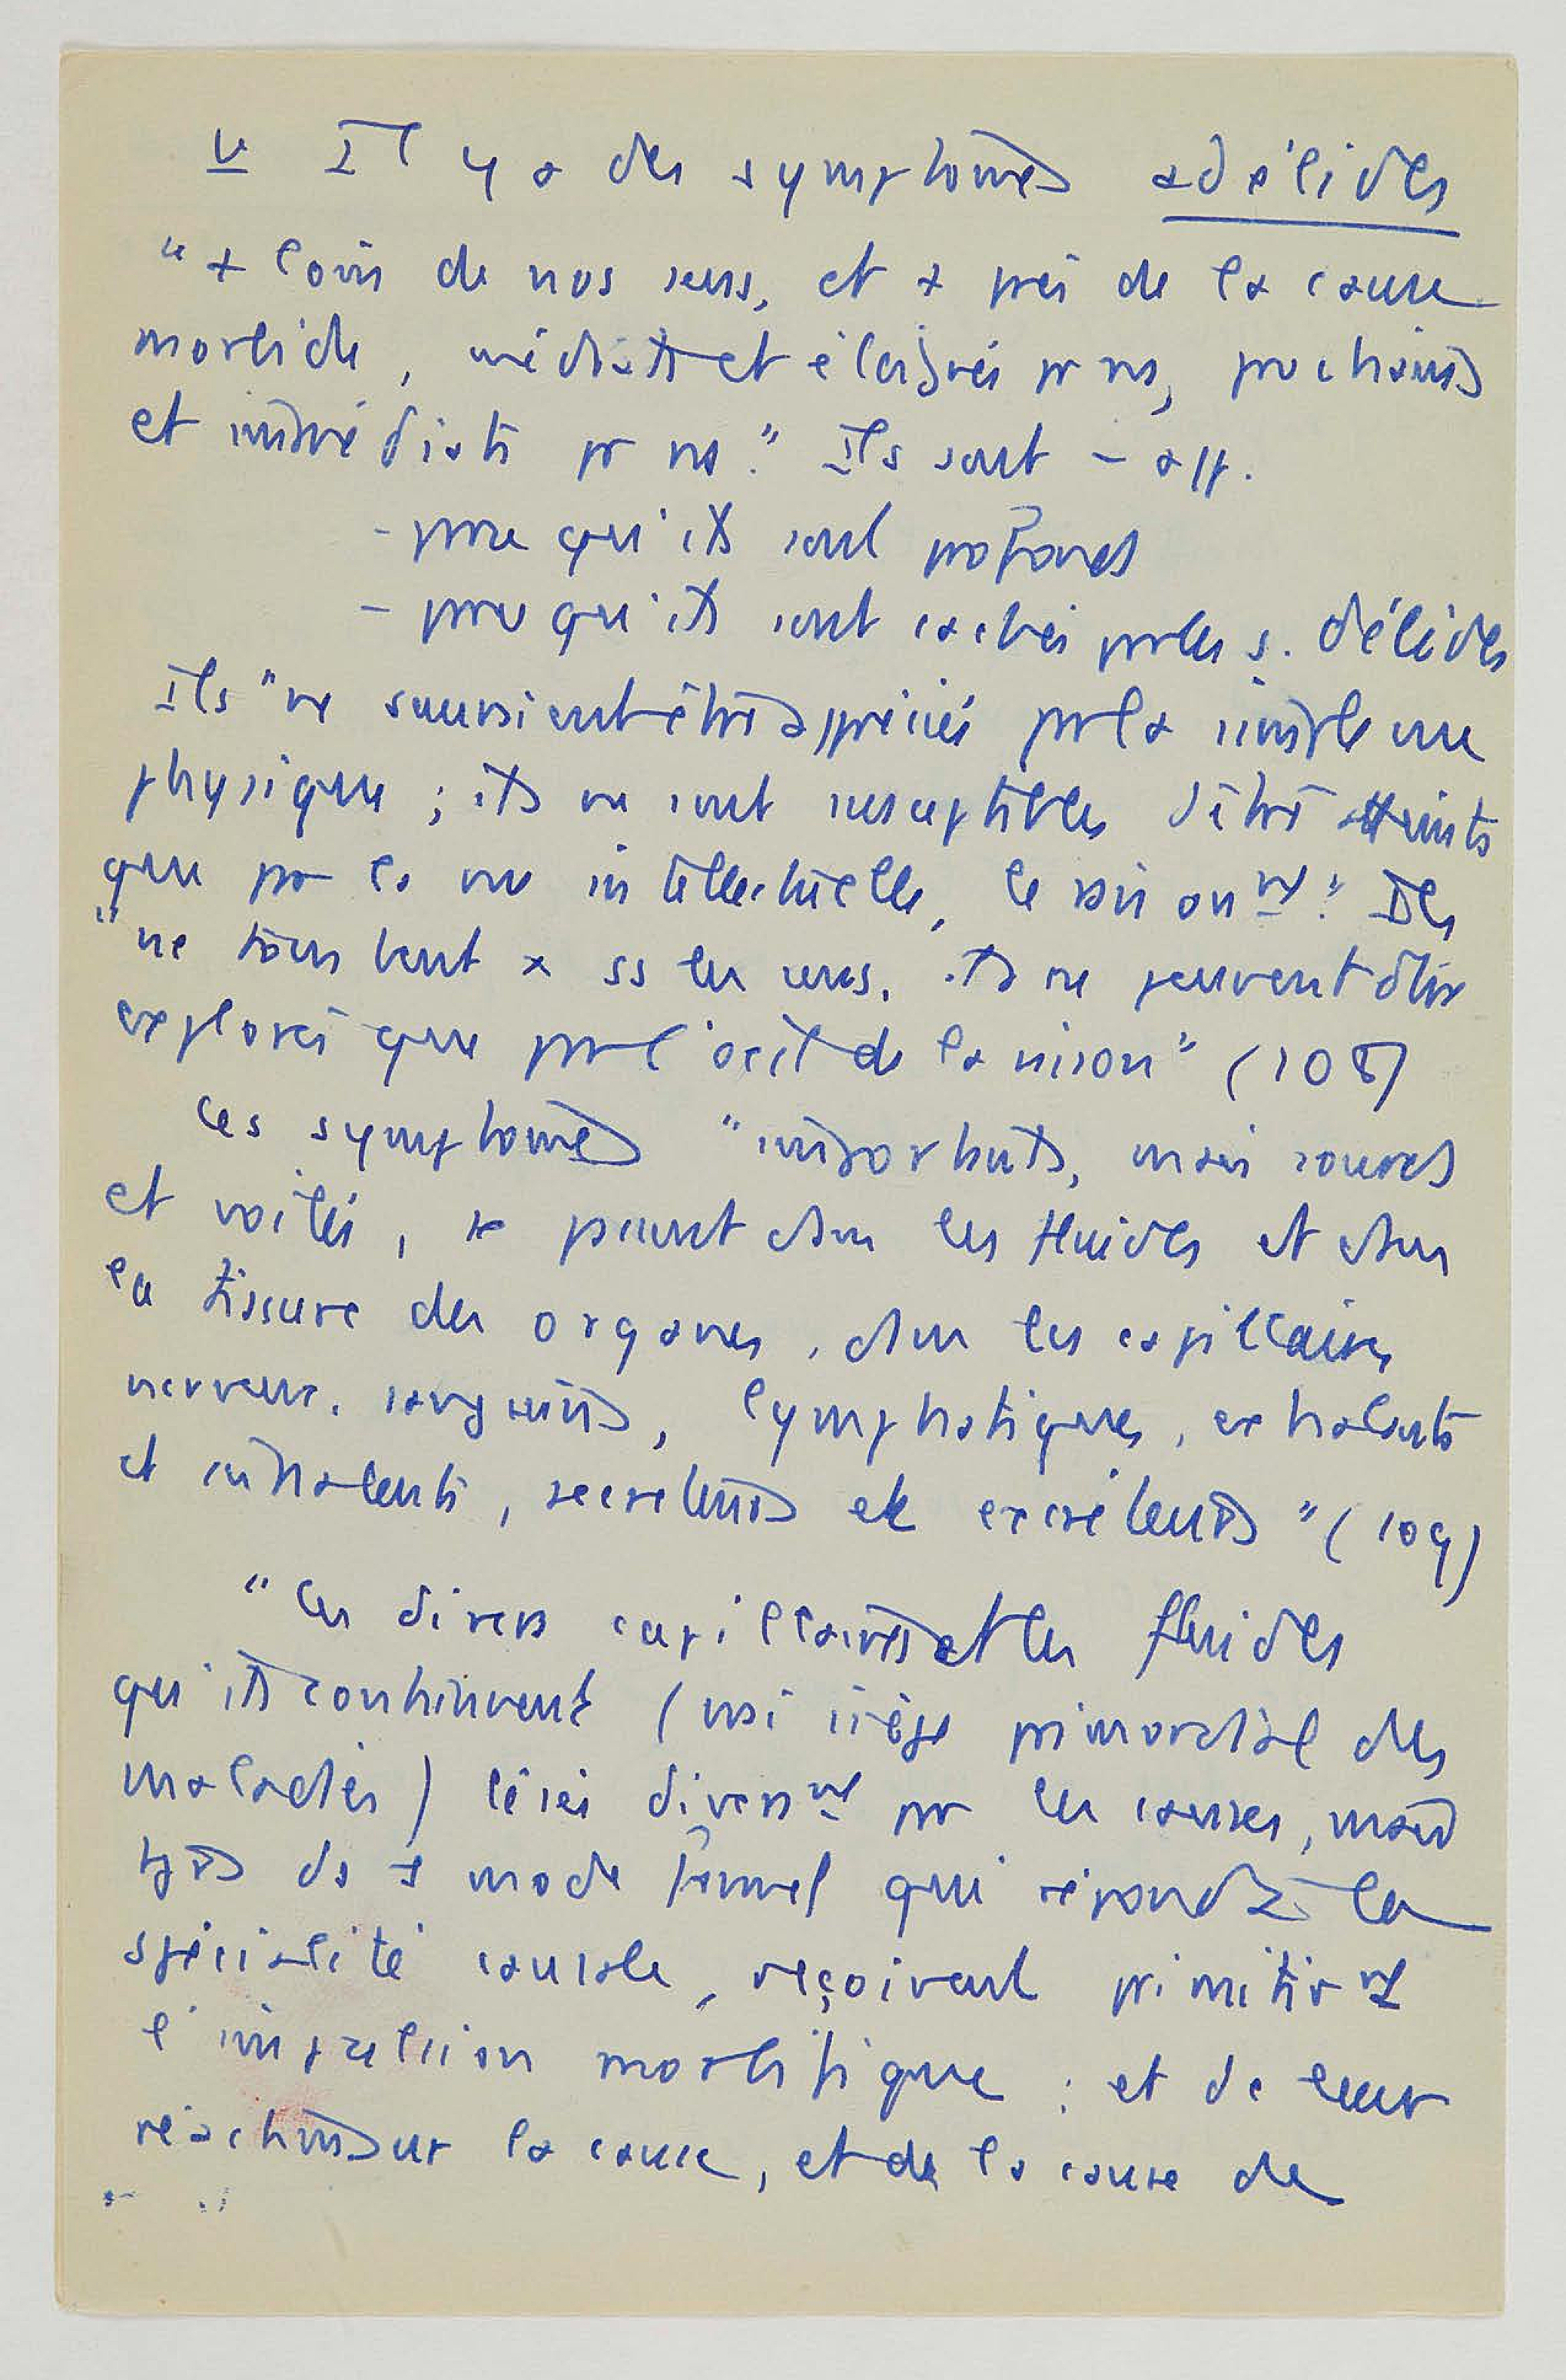 V Il y a des symptômes adélides
"+ loin de nos sens, et + près de la cause
morbide, médiats et éloignés pr ns, prochains
et immédiats pr ns." Ils sont - app.
- prce qu'ils sont profonds
- prce qu'ils sont cachés par les s. délides
Ils "ne sauraient être appréciés par la simple vue
physique ; ils ne sont susceptibles d'être atteints
que par la vue intellectuelle, le raisonnt" Ils
"ne tombent x ss les sens, ils ne peuvent être
explorés que par l'œil de la raison" (108)
Ces symptômes "importants, mais sourds
et voilés, se passent dans les fluides et dans
la tissure des organes, dans les capillaires
nerveux, sanguins, lymphatiques, exhalants
et inhalants, secréteurs et excréteurs" (109)
"Les divers capillaires et les fluides
qu'ils contiennent (vrai siège primordial des
maladies) lésés diversmt par les causes, mais
tjrs ds 1 mode formel qui répond à la
spécialité causale, reçoivent primitivt
l'impulsion morbifique ; et de leur
réaction sur la cause, et de la cause de